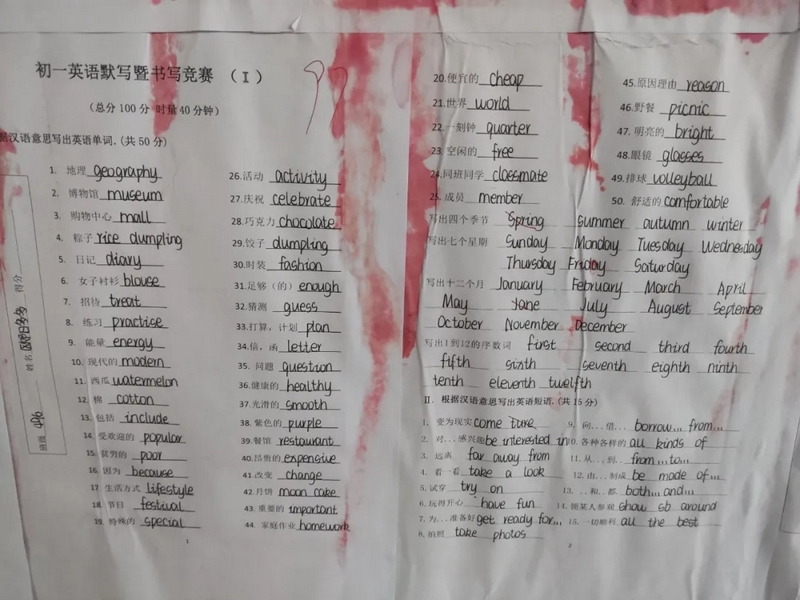 初一英语默写暨书写竞赛 （I）
99
（总分100分 时量40分钟）
据汉语意思写出英语单词.(共50分)
1. 地理 geography
2. 博物馆 museum
3. 购物中心 mall
4. 粽子 rice dumpling
5. 日记 diary
6. 女子衬衫 blouse
7. 招待 treat
8. 练习 practise
9. 能量 energy
10. 现代的 modern
11. 西瓜 watermelon
12. 棉 cotton
13. 包括 include
14. 受欢迎的 popular
15. 贫穷的 poor
16. 因为 because
17. 生活方式 lifestyle
18. 节日 festival
19. 特殊的 special
26.活动 activity
27.庆祝 celebrate
28.巧克力 chocolate
29.饺子 dumpling
30.时装 fashion
31.足够（的）enough
32.猜测 guess
33.打算，计划 plan
34.信，函 letter
35. 问题 question
36.健康的 healthy
37.光滑的 smooth
38.紫色的 purple
39.餐馆 restaurant
40.昂贵的 expensive
41.改变 change
42.月饼 moon cake
43.重要的 important
44. 家庭作业 homework
1
得分
姓名
班级
20.便宜的 cheap
21.世界 world
22.一刻钟 quarter
23.空闲的 free
24.同班同学 classmate
25.成员 member
45.原因理由 reason
46.野餐 picnic
47. 明亮的 bright
48.眼镜 glasses
49.排球 volleyball
50. 舒适的 comfortable
写出四个季节 Spring summer autumn winter
写出七个星期 Sunday Monday Tuesday Wednesday
Thursday Friday Saturday
写出十二个月 January February March April
May June July August September
October November December
写出1到12的序数词 first second third fourth
fifth sixth seventh eighth ninth
tenth eleventh twelfth
II. 根据汉语意思写出英语短语.(共15分)
1. 变为现实 come ture
2. 对...感兴趣 be interested in
3. 远离 far away from
4. 看一看 take a look
5. 试穿 try on
6. 玩得开心 have fun
7. 为...准备好 get ready for...
8. 拍照 take photos
9. 向...借... borrow... from...
10. 各种各样的 all kinds of
11. 从...到... from...to...
12. 由...制成 be made of...
13. ...和...都 both...and...
14. 领某人参观 show sb around
15. 一切顺利 all the best
2